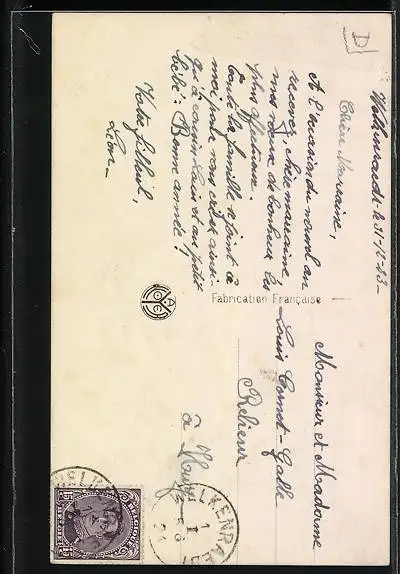 le 31-12-23-
Chère Marraine,
A l'occasion du nouvel an
recevez, chère marraine,
mes vœux de bonheur les
plus affectueux.
Toute la famille se joint à
moi pour vous ainsi
qu'à cousin Louis et au petit
bébé: Bonne année!
Votre filleul,
Léon-
Fabrication Française
Monsieur et Madame
Louis Cornet-Galle
Relieur
à Huy
BELGIQUE
15
BELGIË